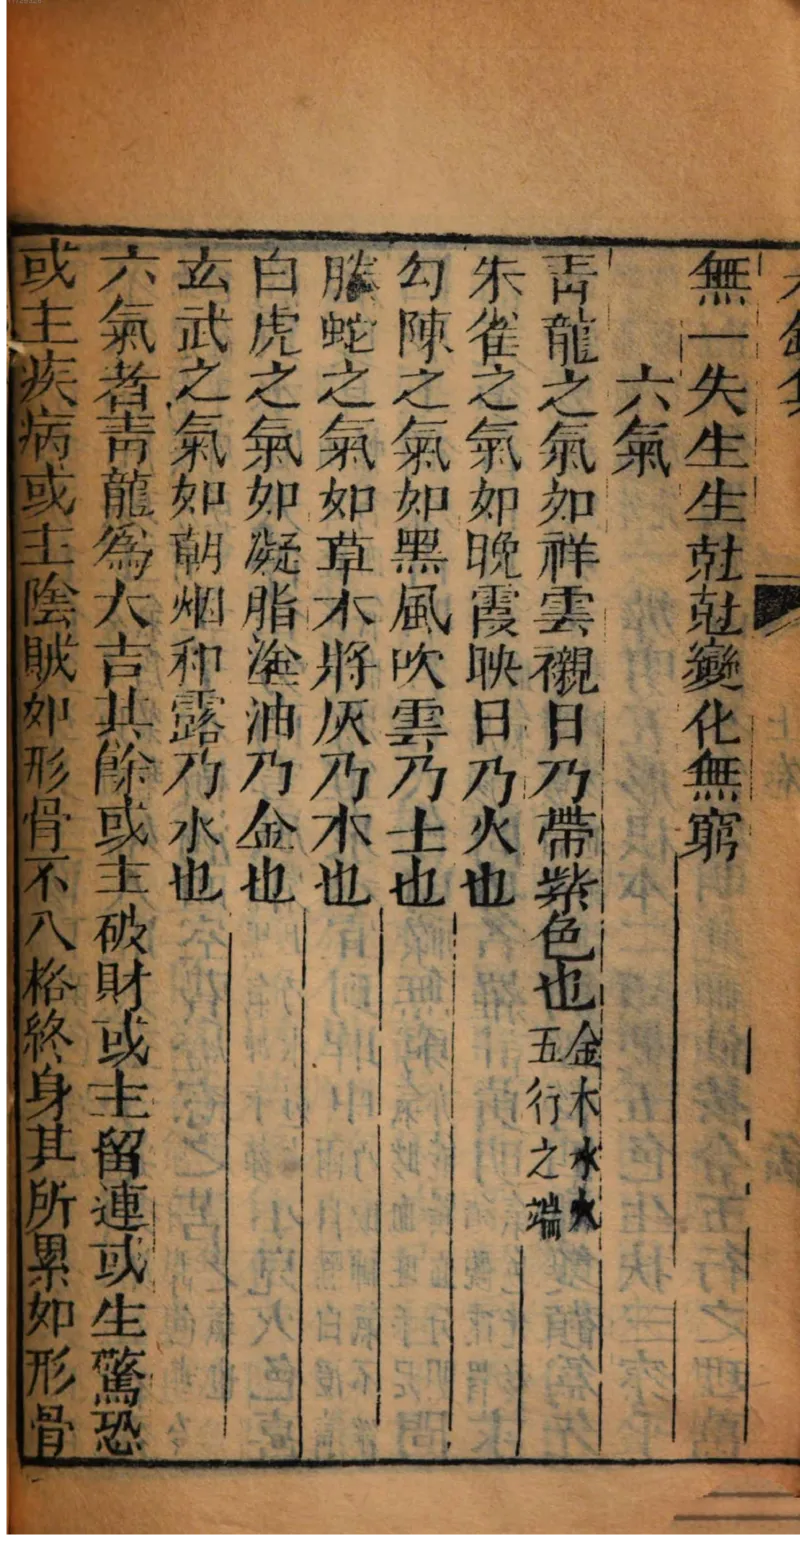 無一失生生尅尅變化無窮
六氣
青龍之氣如祥雲襯日乃帶紫色也金木水火
五行之端
朱雀之氣如晚霞映日乃火也
勾陳之氣如黑風吹雲乃土也
螣蛇之氣如草木將灰乃木也
白虎之氣如凝脂塗油乃金也
玄武之氣如朝烟和露乃水也
六氣者青龍爲大吉其餘或主破財或主留連或生驚恐
或主疾病或主陰賊如形骨不入格終身其所累如形骨